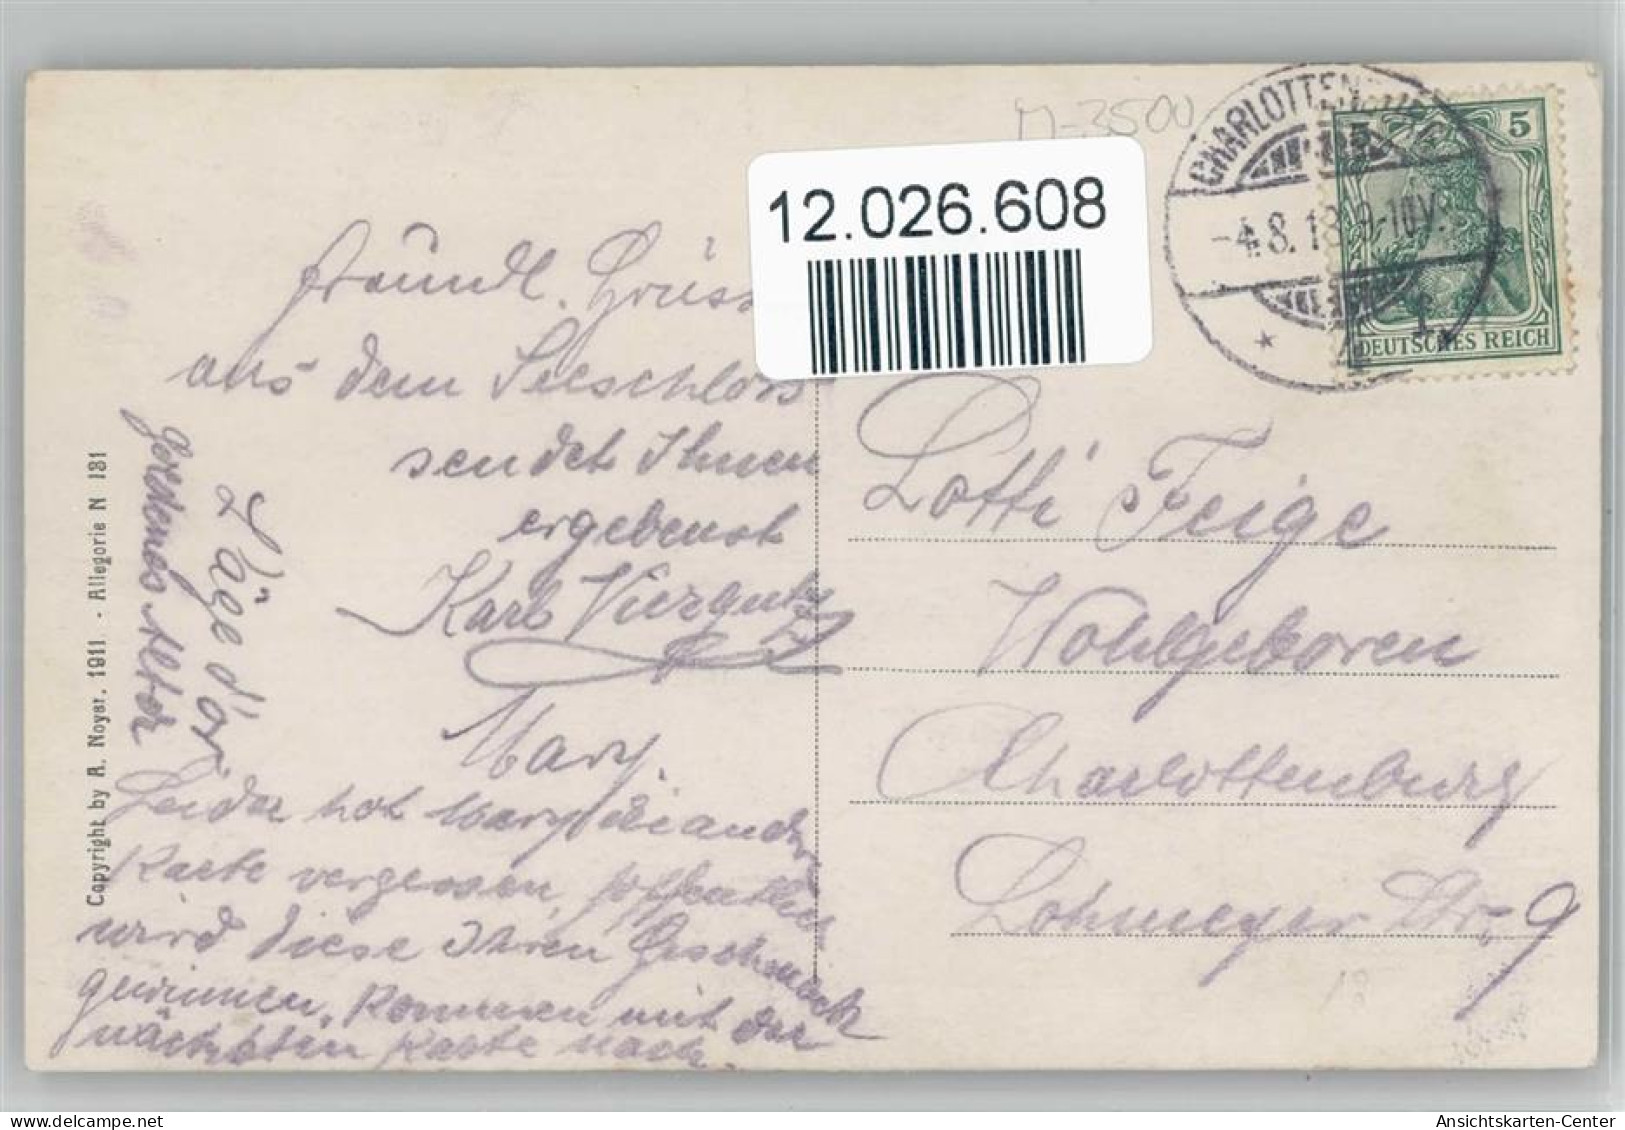 M-3500
12.026.608
CHARLOTTEN
-4.8.13.9-10V.
5 5
DEUTSCHES REICH
Freundl. Grüss
aus dem Seeschloss
sendet Ihnen
ergebenst
Karl Viergutz
Mary.
Leider hat Mary die andere
Karte vergessen, hoffentlich
wird diese Ihren Geschmack
gewinnen. Kommen mit der
nächsten Karte nach.
L'äge d'or
goldenes Alter
Copyright by A. Noyer. 1911. - Allegorie N 131
Lotti Feige
Wohlgeboren
Charlottenburg
Lohmeyer Str. 9
18
Ansichtskarten-Center